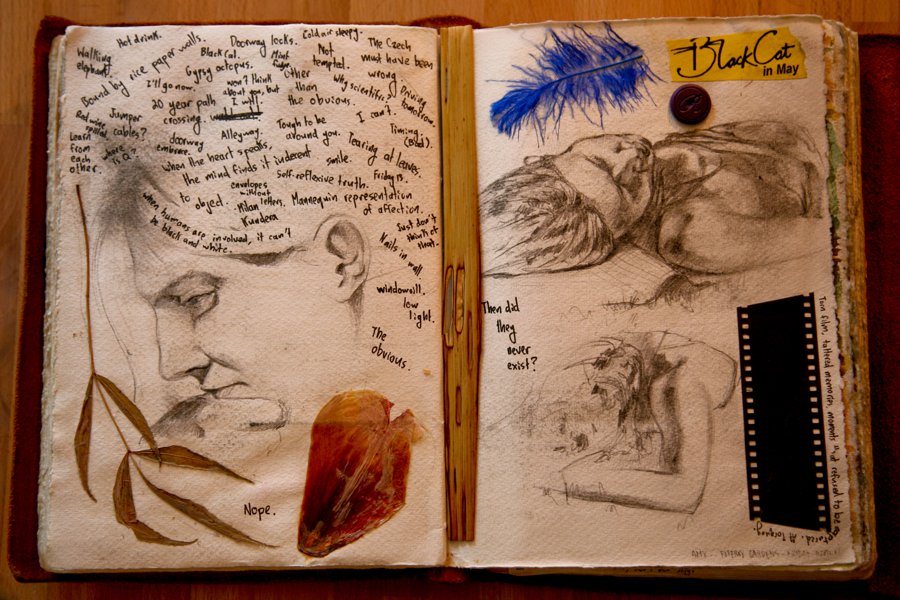 Hot drink.
Walking elephant.
Bound by rice paper walls.
Doorway locks.
Cold air sleepy.
Black Cat.
Gypsy octopus.
I'll go now.
Not temptal.
The Czech must have been wrong.
Other than the obvious.
Why scientific?
Driving tomorrow.
won't think about you, but I will
20 year path crossing.
I can't.
Jumper cables?
Red wine
Learn from each other.
where is Q?
doorway embrace.
Alleyway.
Tough to be around you.
Timing.
when the heart speaks,
the mind finds it indecent
to object.
smile.
Tearing at leaves.
Self-reflexive truth.
Friday 13.
envelopes without
Milan letters,
Kundera
Mannequin representation
of affection.
when humans are involved, it can't
be black and white.
Just don't think of that.
Nails in wall
windowsill.
low light.
The obvious.
Nope.
BlackCat
in May
Then did
they
never
exist?
Torn film, tattered memories, moments that refused to be